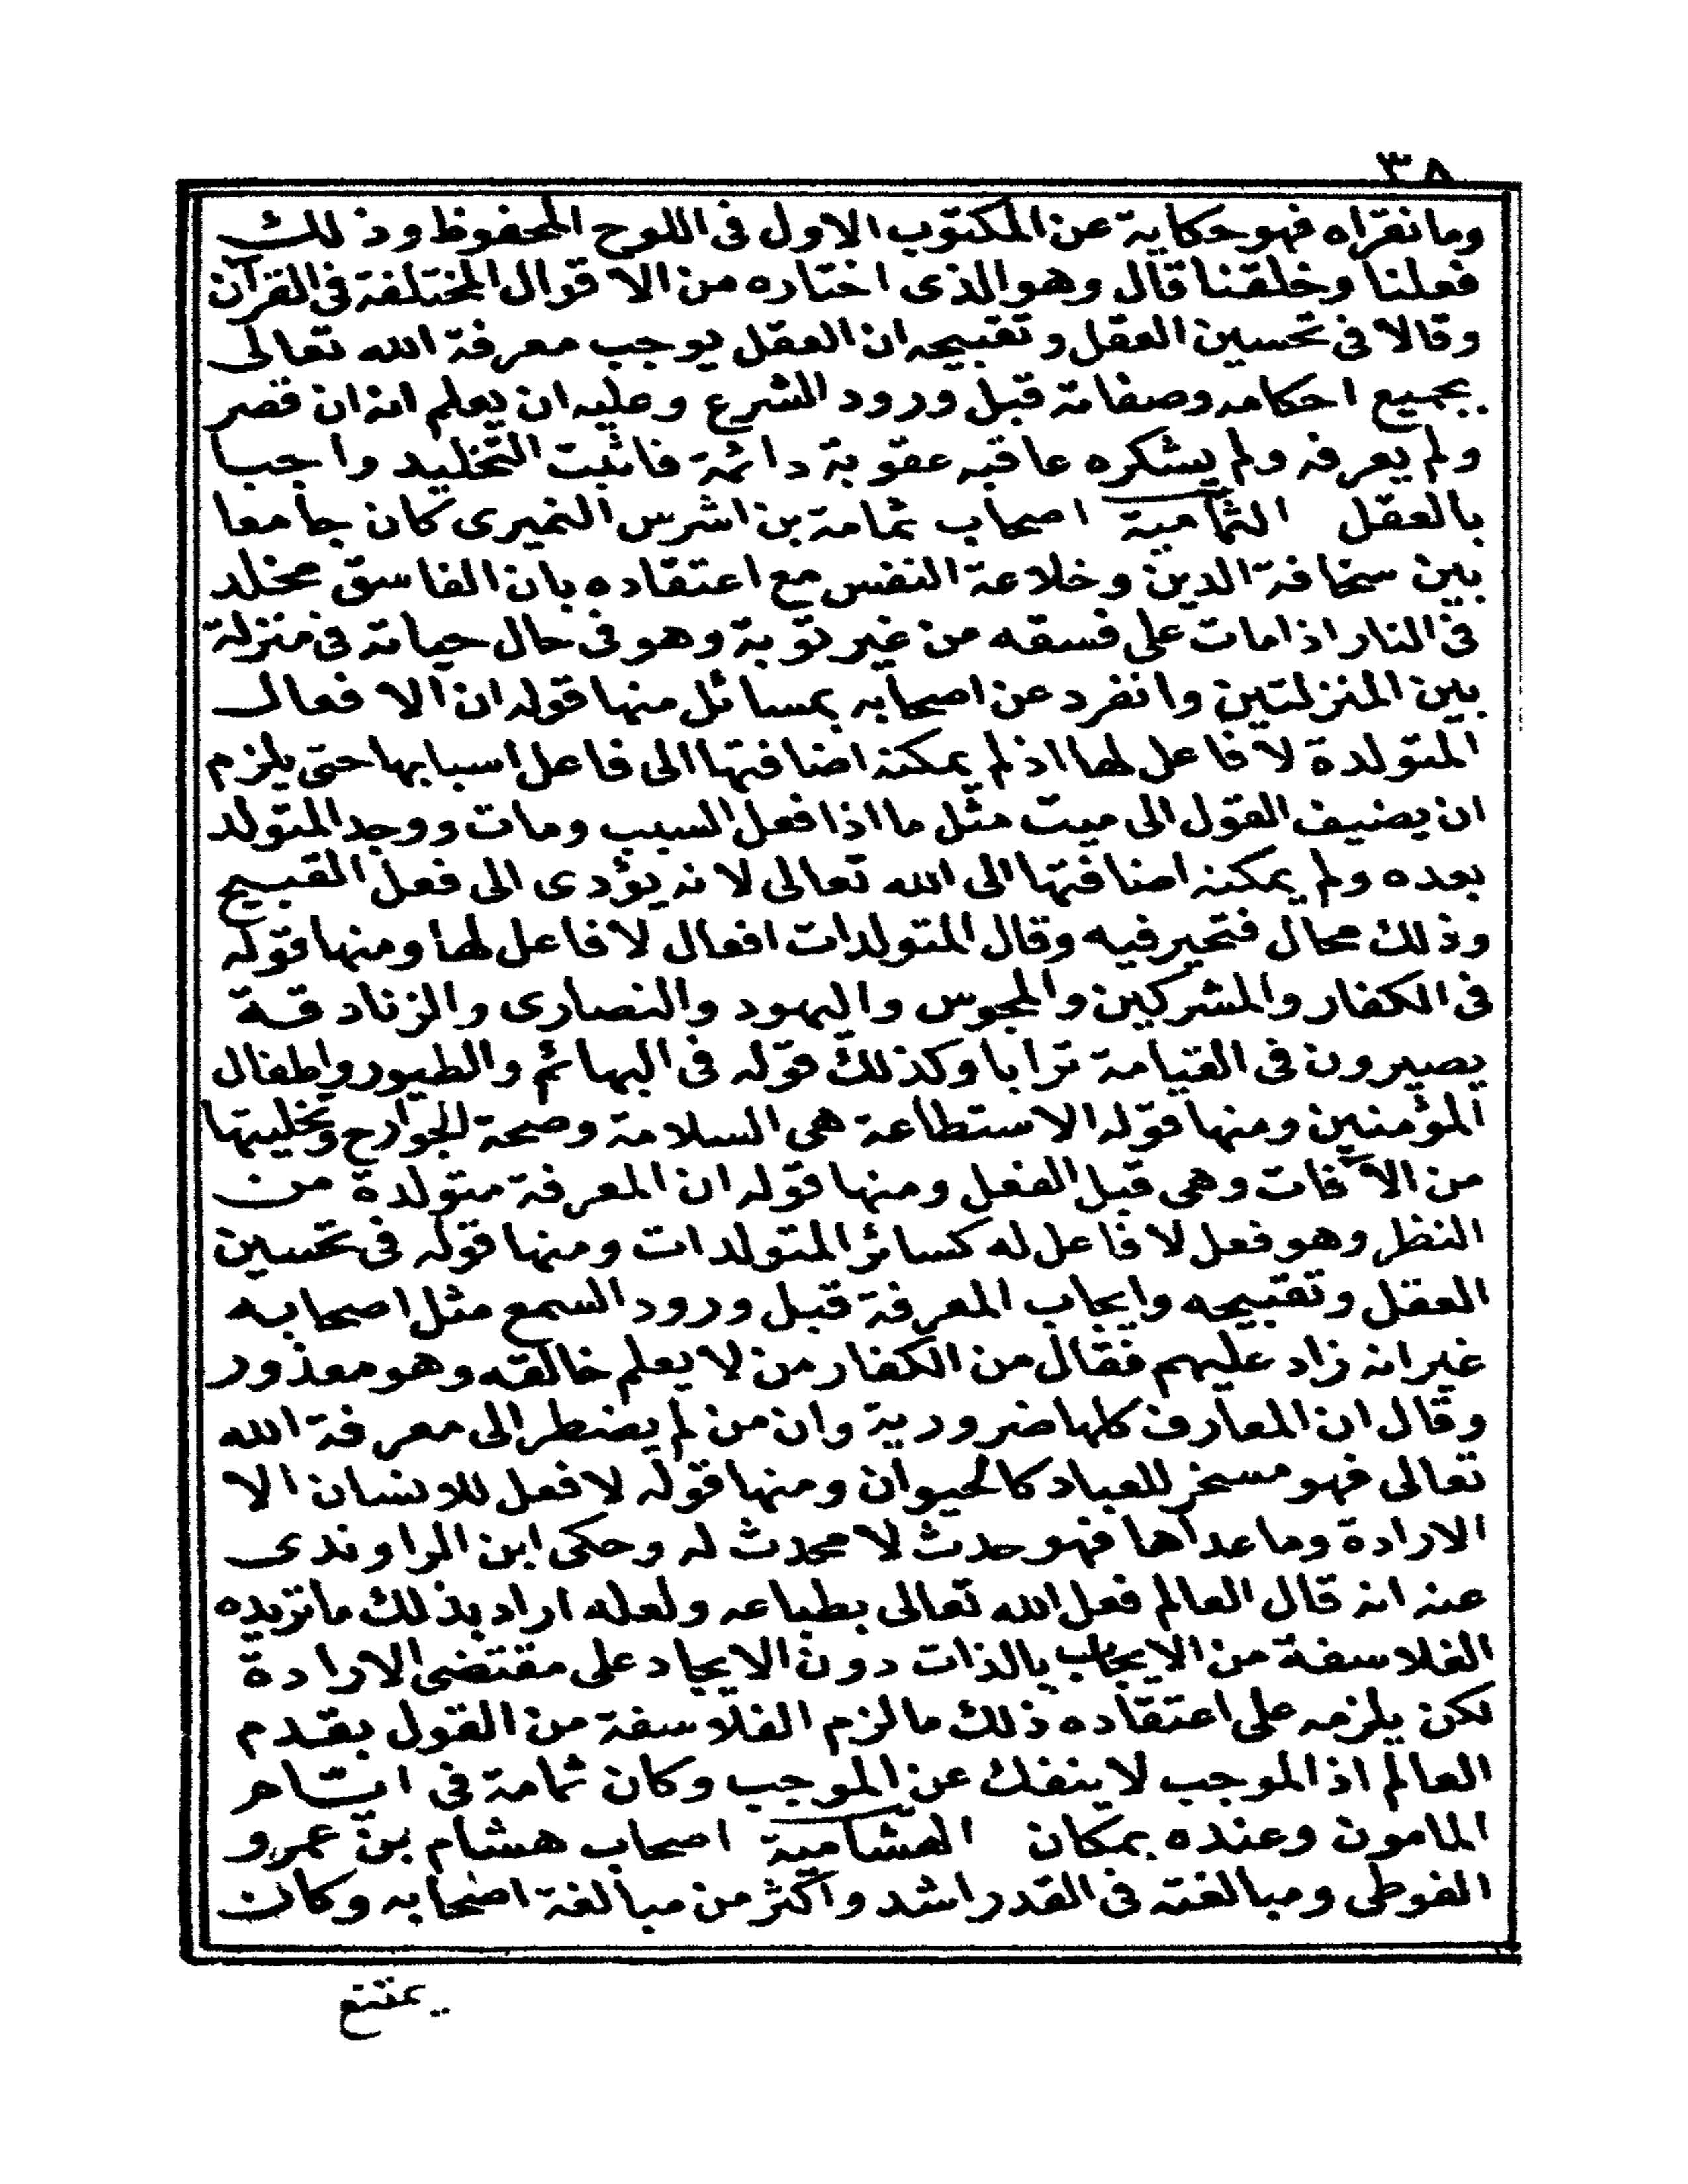 ٣٨
وما نقراه فهو حكاية عن المكتوب الاول فى اللوح المحفوظ وذلك
فعلنا وخلقنا قال وهو الذى اختاره من الاقوال المختلفة فى القرآن
وقالا فى تحسين العقل وتقبيحه ان العقل يوجب معرفة الله تعالى
بجميع احكامه وصفاته قبل ورود الشرع وعليه ان يعلم انه ان قصر
ولم يعرفه ولم يشكره عاقبه عقوبة دائمة فاثبت التخليد واجبا
بالعقل الثمامية اصحاب ثمامة بن اشرس النميرى كان جامعا
بين سخافة الدين وخلاعة النفس مع اعتقاده بان الفاسق مخلد
فى النار اذا مات على فسقه من غير توبة وهو فى حال حياته فى منزلة
بين المنزلتين وانفرد عن اصحابه بمسائل منها قوله ان الافعال
المتولدة لا فاعل لها اذ لم يمكنه اضافتها الى فاعل اسبابها حتى يلزم
ان يضيف القول الى ميت مثل ما اذا فعل السبب ومات ووجد المتولد
بعده ولم يمكنه اضافتها الى الله تعالى لانه يؤدى الى فعل القبيح
وذلك محال فتحير فيه وقال المتولدات افعال لا فاعل لها ومنها قوله
فى الكفار والمشركين والمجوس واليهود والنصارى والزنادقة
يصيرون فى القيامة ترابا وكذلك قوله فى البهائم والطيور واطفال
المؤمنين ومنها قوله الاستطاعة هى السلامة وصحة الجوارح وتخليتها
من الآفات وهى قبل الفعل ومنها قوله ان المعرفة متولدة من
النظر وهو فعل لا فاعل له كسائر المتولدات ومنها قوله فى تحسين
العقل وتقبيحه وايجاب المعرفة قبل ورود السمع مثل اصحابه
غير انه زاد عليهم فقال من الكفار من لا يعلم خالقه وهو معذور
وقال ان المعارف كلها ضرورية وان من لم يضطر الى معرفة الله
تعالى فهو مسخر للعباد كالحيوان ومنها قوله لا فعل للانسان الا
الارادة وما عداها فهو حدث لا محدث له وحكى ابن الراوندى
عنه انه قال العالم فعل الله تعالى بطباعه ولعله اراد بذلك ما تريده
الفلاسفة من الايجاب بالذات دون الايجاد على مقتضى الارادة
لكن يلزمه على اعتقاده ذلك ما لزم الفلاسفة من القول بقدم
العالم اذ الموجب لا ينفك عن الموجب وكان ثمامة فى ايتاهر
المامون وعنده بمكان الهشامية اصحاب هشام بن عمرو
الفوطى ومبالغته فى القدر اشد واكثر من مبالغة اصحابه وكان
يمتنع